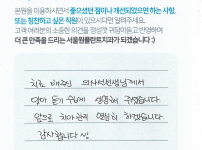 본원을 이용하시면서 좋으셨던 점이나 개선되었으면 하는 사항,
또는 칭찬하고 싶은 직원이 있으시다면 말씀해주세요.
고객 여러분의 소중한 의견을 정성껏 귀담아듣고 반영하여
더 큰 만족을 드리는 서울원플란트치과가 되겠습니다 :)
치료 해주신 의사선생님께서
많이 듣기 쉽게 설명해 주셨습니다.
앞으로 치아관리 열심히 하겠습니다.
감사합니다